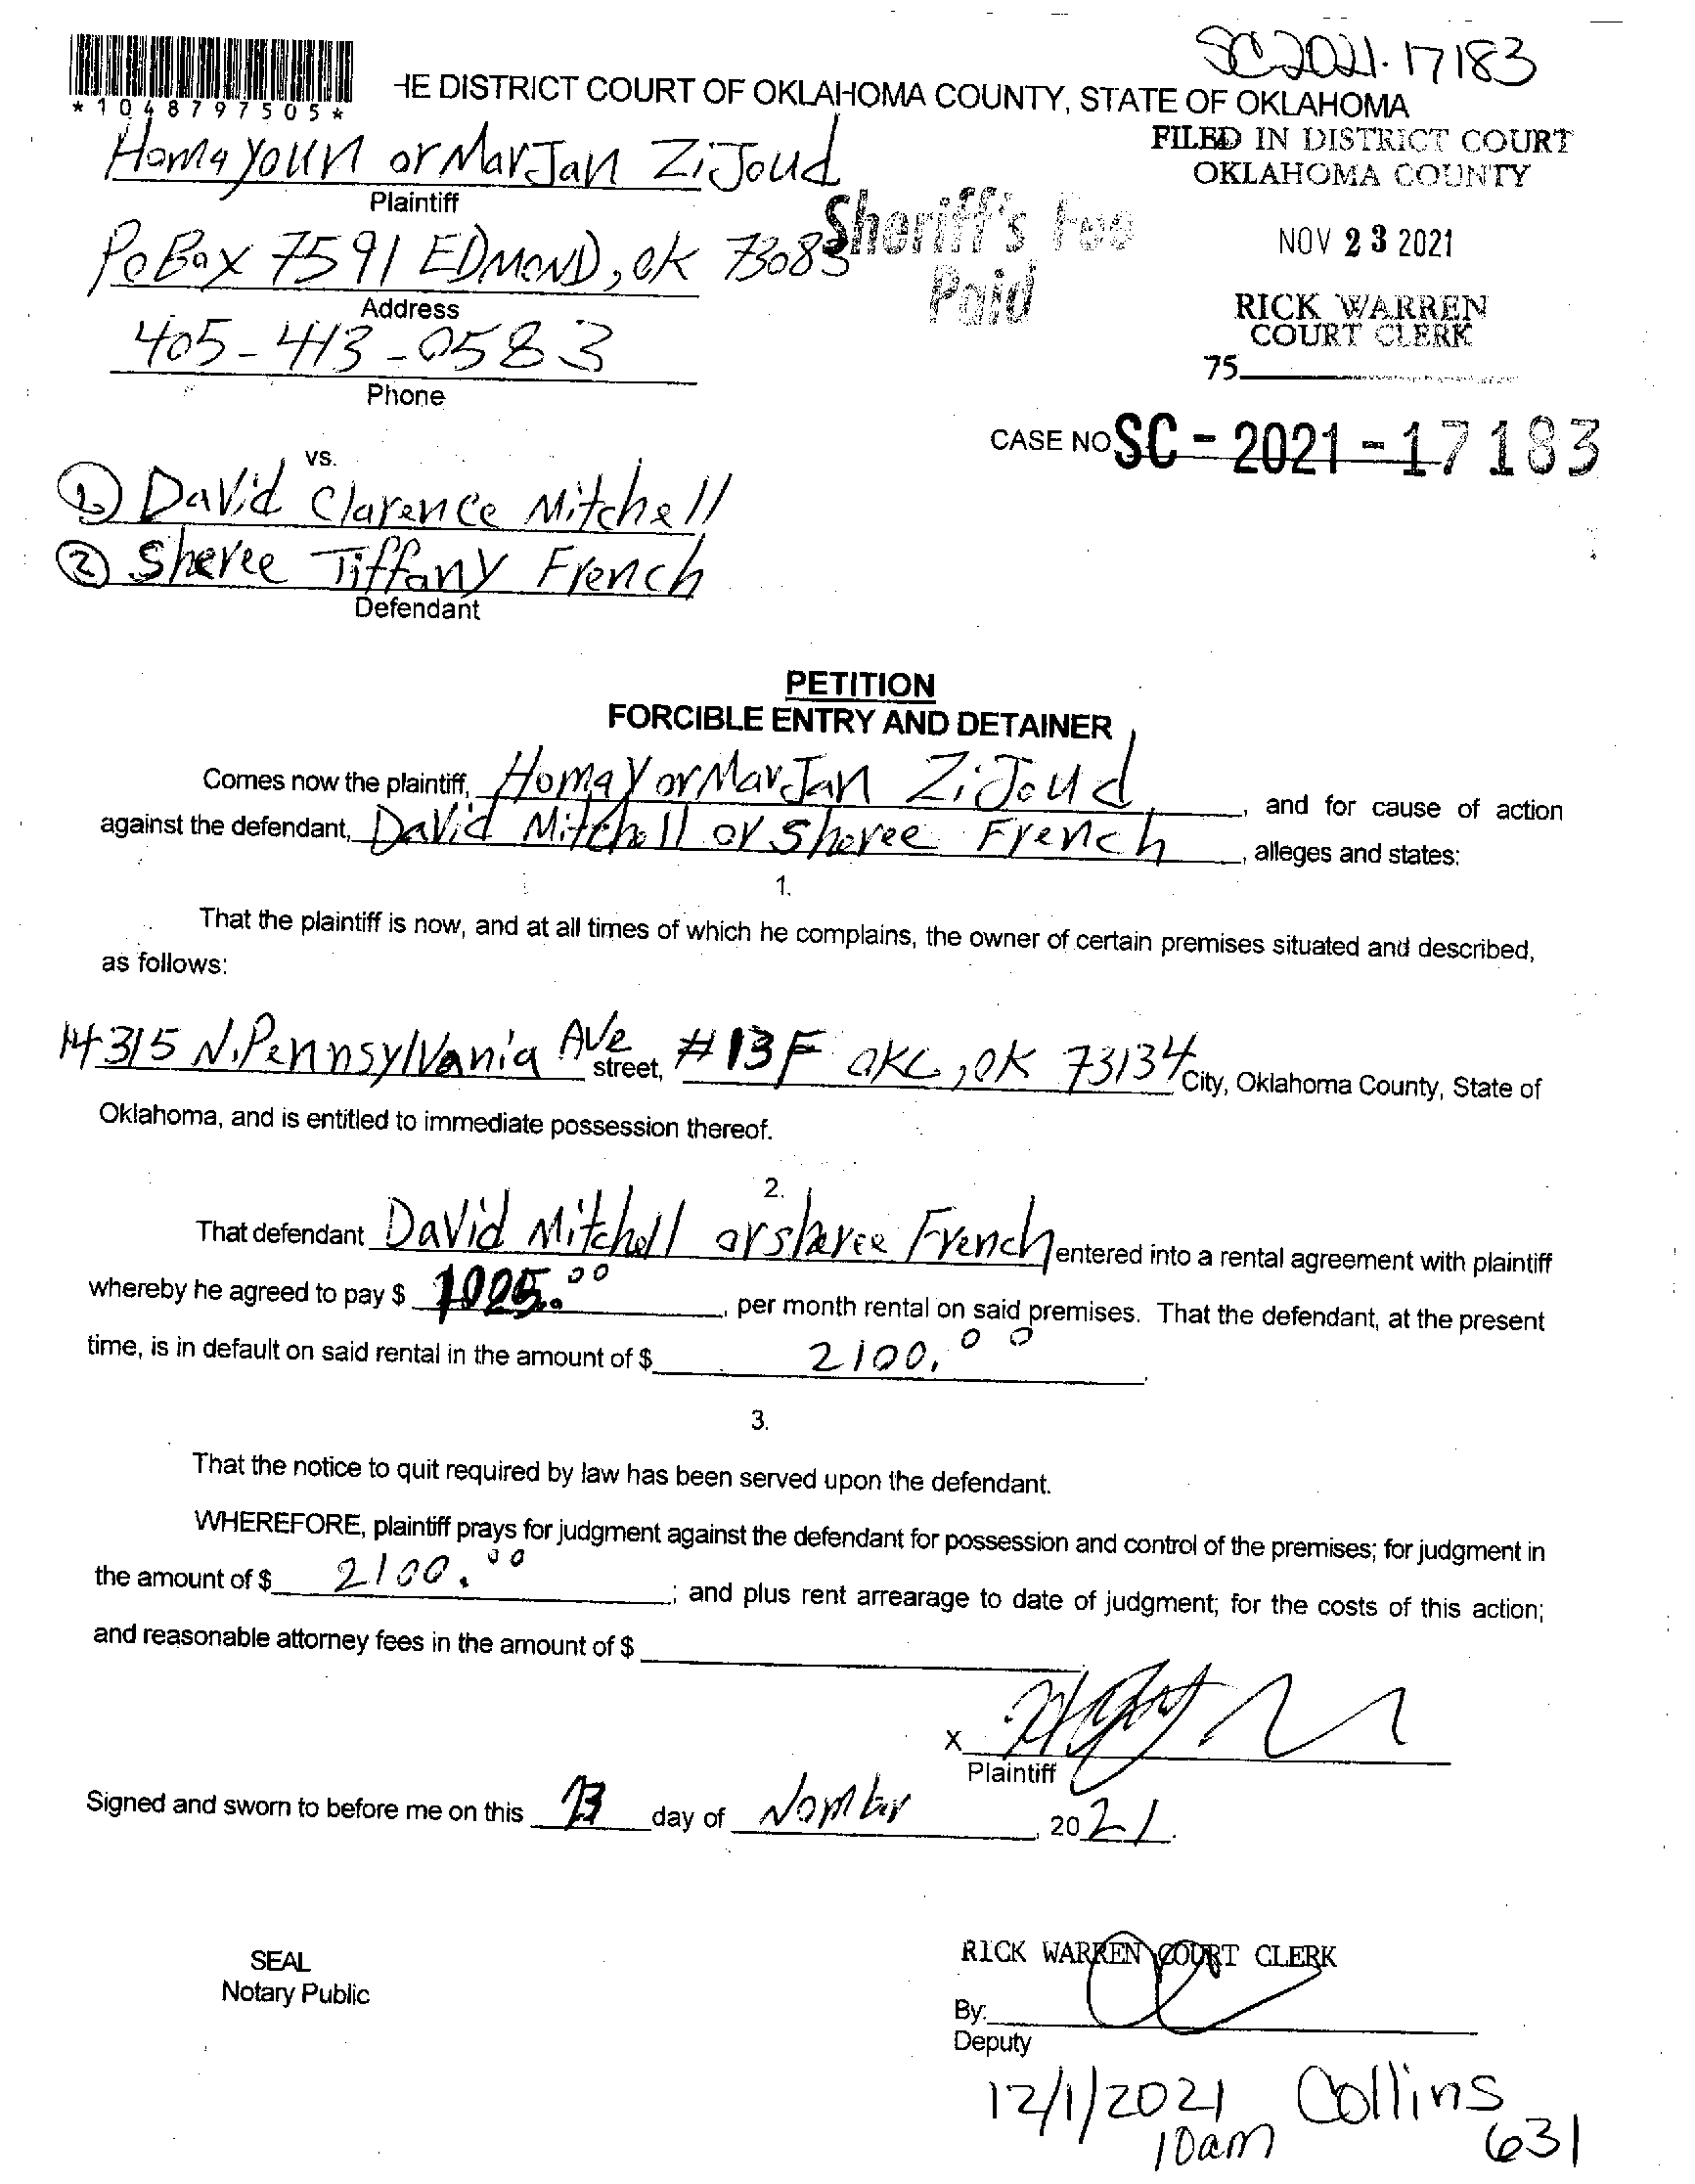 SC2021-17183
*1048797505*
HE DISTRICT COURT OF OKLAHOMA COUNTY, STATE OF OKLAHOMA
FILED IN DISTRICT COURT
OKLAHOMA COUNTY
Homayoun or MarJan ZiJoud
Plaintiff
Sheriff's Fee
Paid
NOV 23 2021
PoBox 7591 EDMOND, OK 73083
Address
RICK WARREN
COURT CLERK
405-413-0583
75
Phone
CASE NO SC-2021-17183
vs.
1 David Clarence Mitchell
2 Sheree Tiffany French
Defendant
PETITION
FORCIBLE ENTRY AND DETAINER
Comes now the plaintiff, HomaY or MarJan ZiJoud, and for cause of action
against the defendant, David Mitchell or Sheree French, alleges and states:
1.
That the plaintiff is now, and at all times of which he complains, the owner of certain premises situated and described,
as follows:
14315 N. Pennsylvania Ave street, #13F OKC, OK 73134 City, Oklahoma County, State of
Oklahoma, and is entitled to immediate possession thereof.
2.
That defendant David Mitchell or sheree French entered into a rental agreement with plaintiff
whereby he agreed to pay $ 1025.00, per month rental on said premises. That the defendant, at the present
time, is in default on said rental in the amount of $ 2100.00.
3.
That the notice to quit required by law has been served upon the defendant.
WHEREFORE, plaintiff prays for judgment against the defendant for possession and control of the premises; for judgment in
the amount of $ 2100.00; and plus rent arrearage to date of judgment; for the costs of this action;
and reasonable attorney fees in the amount of $
X
Plaintiff
Signed and sworn to before me on this 23 day of November, 2021.
SEAL
Notary Public
RICK WARREN COURT CLERK
By:
Deputy
12/1/2021 Collins
10am 631